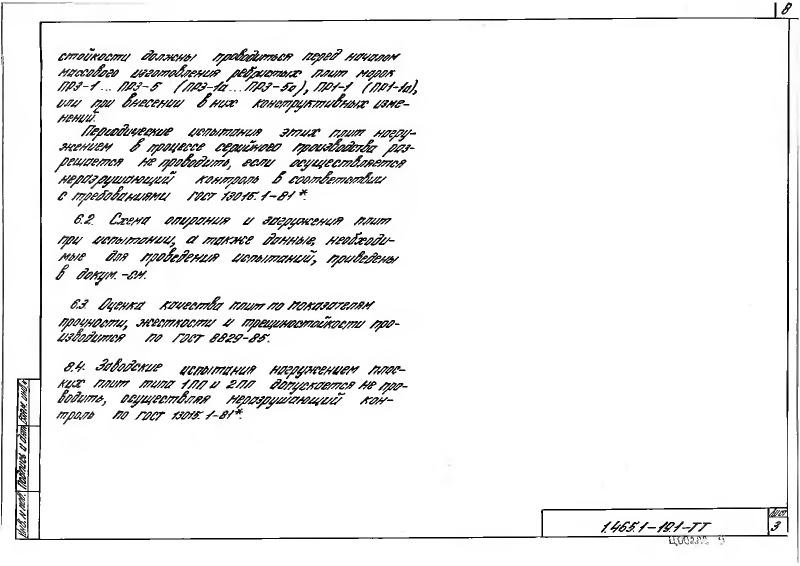 8
стойкости должны проводиться перед началом
массового изготовления ребристых плит марок
ПРЭ-1... ПРЭ-5 (ПРЭ-1а... ПРЭ-5а), ПР1-1 (ПР1-1а),
или при внесении в них конструктивных изме-
нений.
Периодические испытания этих плит нагру-
жением в процессе серийного производства раз-
решается не проводить, если осуществляется
неразрушающий контроль в соответствии
с требованиями ГОСТ 13015.1-81*.
6.2. Схема опирания и загружения плит
при испытании, а также данные, необходи-
мые для проведения испытаний, приведены
в докум. -СМ.
6.3. Оценка качества плит по показателям
прочности, жесткости и трещиностойкости про-
изводится по ГОСТ 8829-85.
8.4. Заводские испытания нагружением плос-
ких плит типа 1ПП и 2ПП допускается не про-
водить, осуществляя неразрушающий кон-
троль по ГОСТ 13015.1-81*.
Инв. № подл. Подпись и дата Взам. инв. №
1.465.1-19.1-ТТ
Лист
3